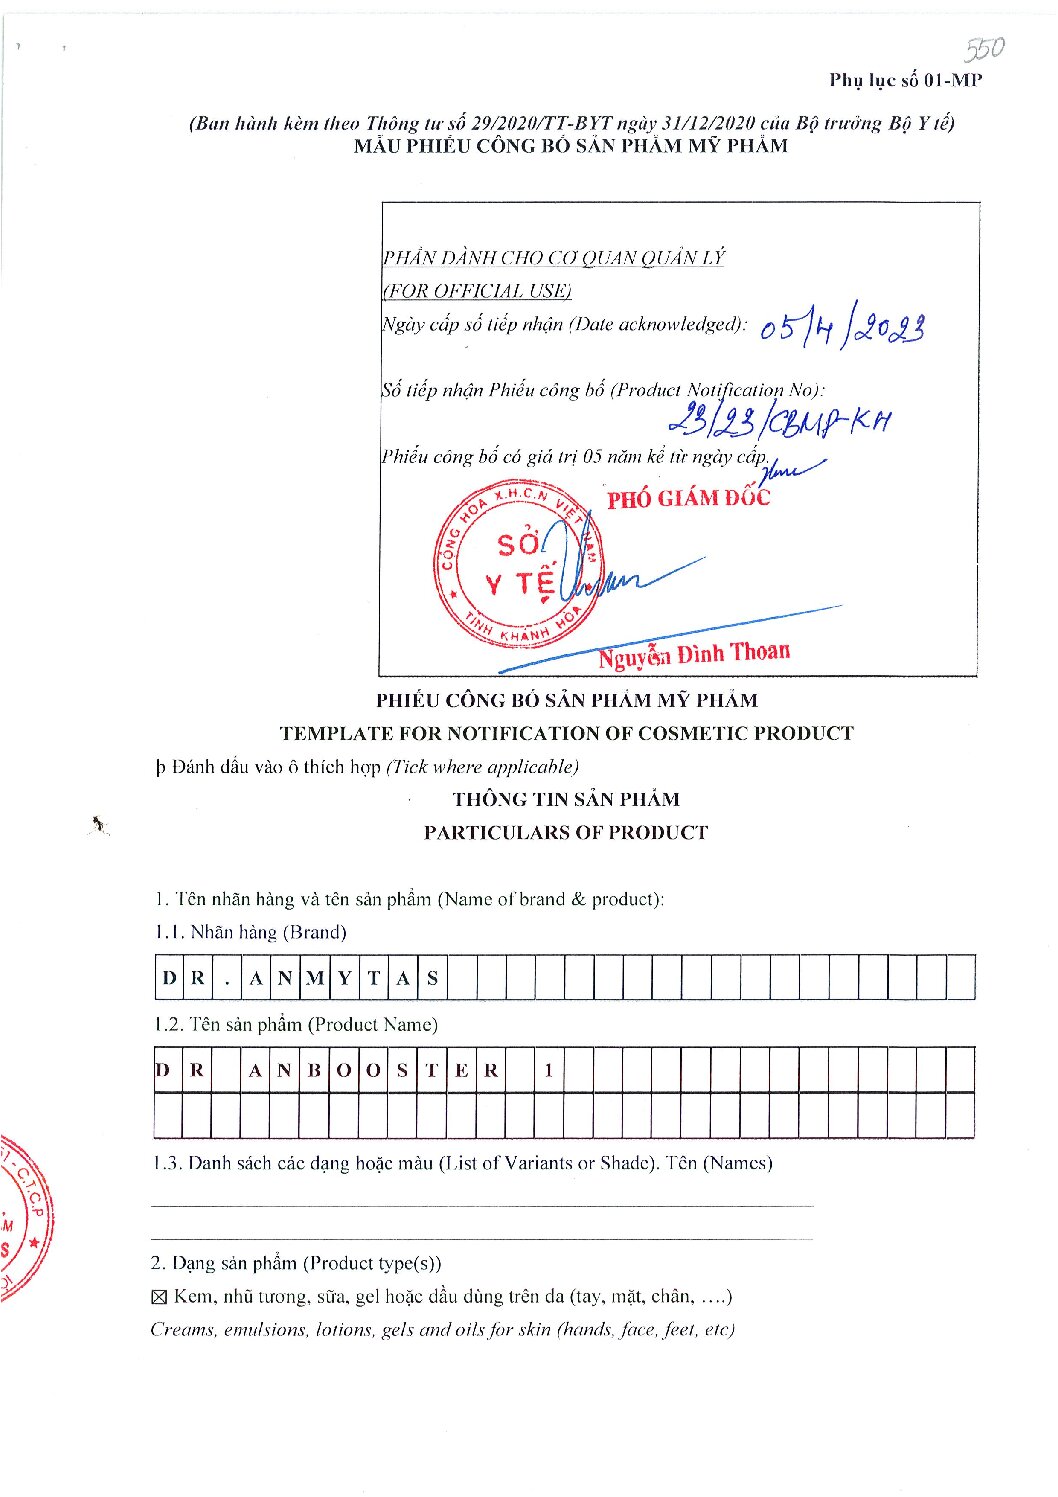 550
Phụ lục số 01-MP
(Ban hành kèm theo Thông tư số 29/2020/TT-BYT ngày 31/12/2020 của Bộ trưởng Bộ Y tế)
MẪU PHIẾU CÔNG BỐ SẢN PHẨM MỸ PHẨM
PHẦN DÀNH CHO CƠ QUAN QUẢN LÝ
(FOR OFFICIAL USE)
Ngày cấp số tiếp nhận (Date acknowledged): 05/4/2023
Số tiếp nhận Phiếu công bố (Product Notification No):
23/23/CBMP-KH
Phiếu công bố có giá trị 05 năm kể từ ngày cấp.
PHÓ GIÁM ĐỐC
CỘNG HÒA X.H.C.N VIỆT NAM
SỞ
Y TẾ
TỈNH KHÁNH HÒA
Nguyễn Đình Thoan
PHIẾU CÔNG BỐ SẢN PHẨM MỸ PHẨM
TEMPLATE FOR NOTIFICATION OF COSMETIC PRODUCT
þ Đánh dấu vào ô thích hợp (Tick where applicable)
THÔNG TIN SẢN PHẨM
PARTICULARS OF PRODUCT
1. Tên nhãn hàng và tên sản phẩm (Name of brand & product):
1.1. Nhãn hàng (Brand)
DR.ANMYTAS
1.2. Tên sản phẩm (Product Name)
DR ANBOOSTER 1
1.3. Danh sách các dạng hoặc màu (List of Variants or Shade). Tên (Names)
C.T.C.P
2. Dạng sản phẩm (Product type(s))
☒ Kem, nhũ tương, sữa, gel hoặc dầu dùng trên da (tay, mặt, chân, ….)
Creams, emulsions, lotions, gels and oils for skin (hands, face, feet, etc)